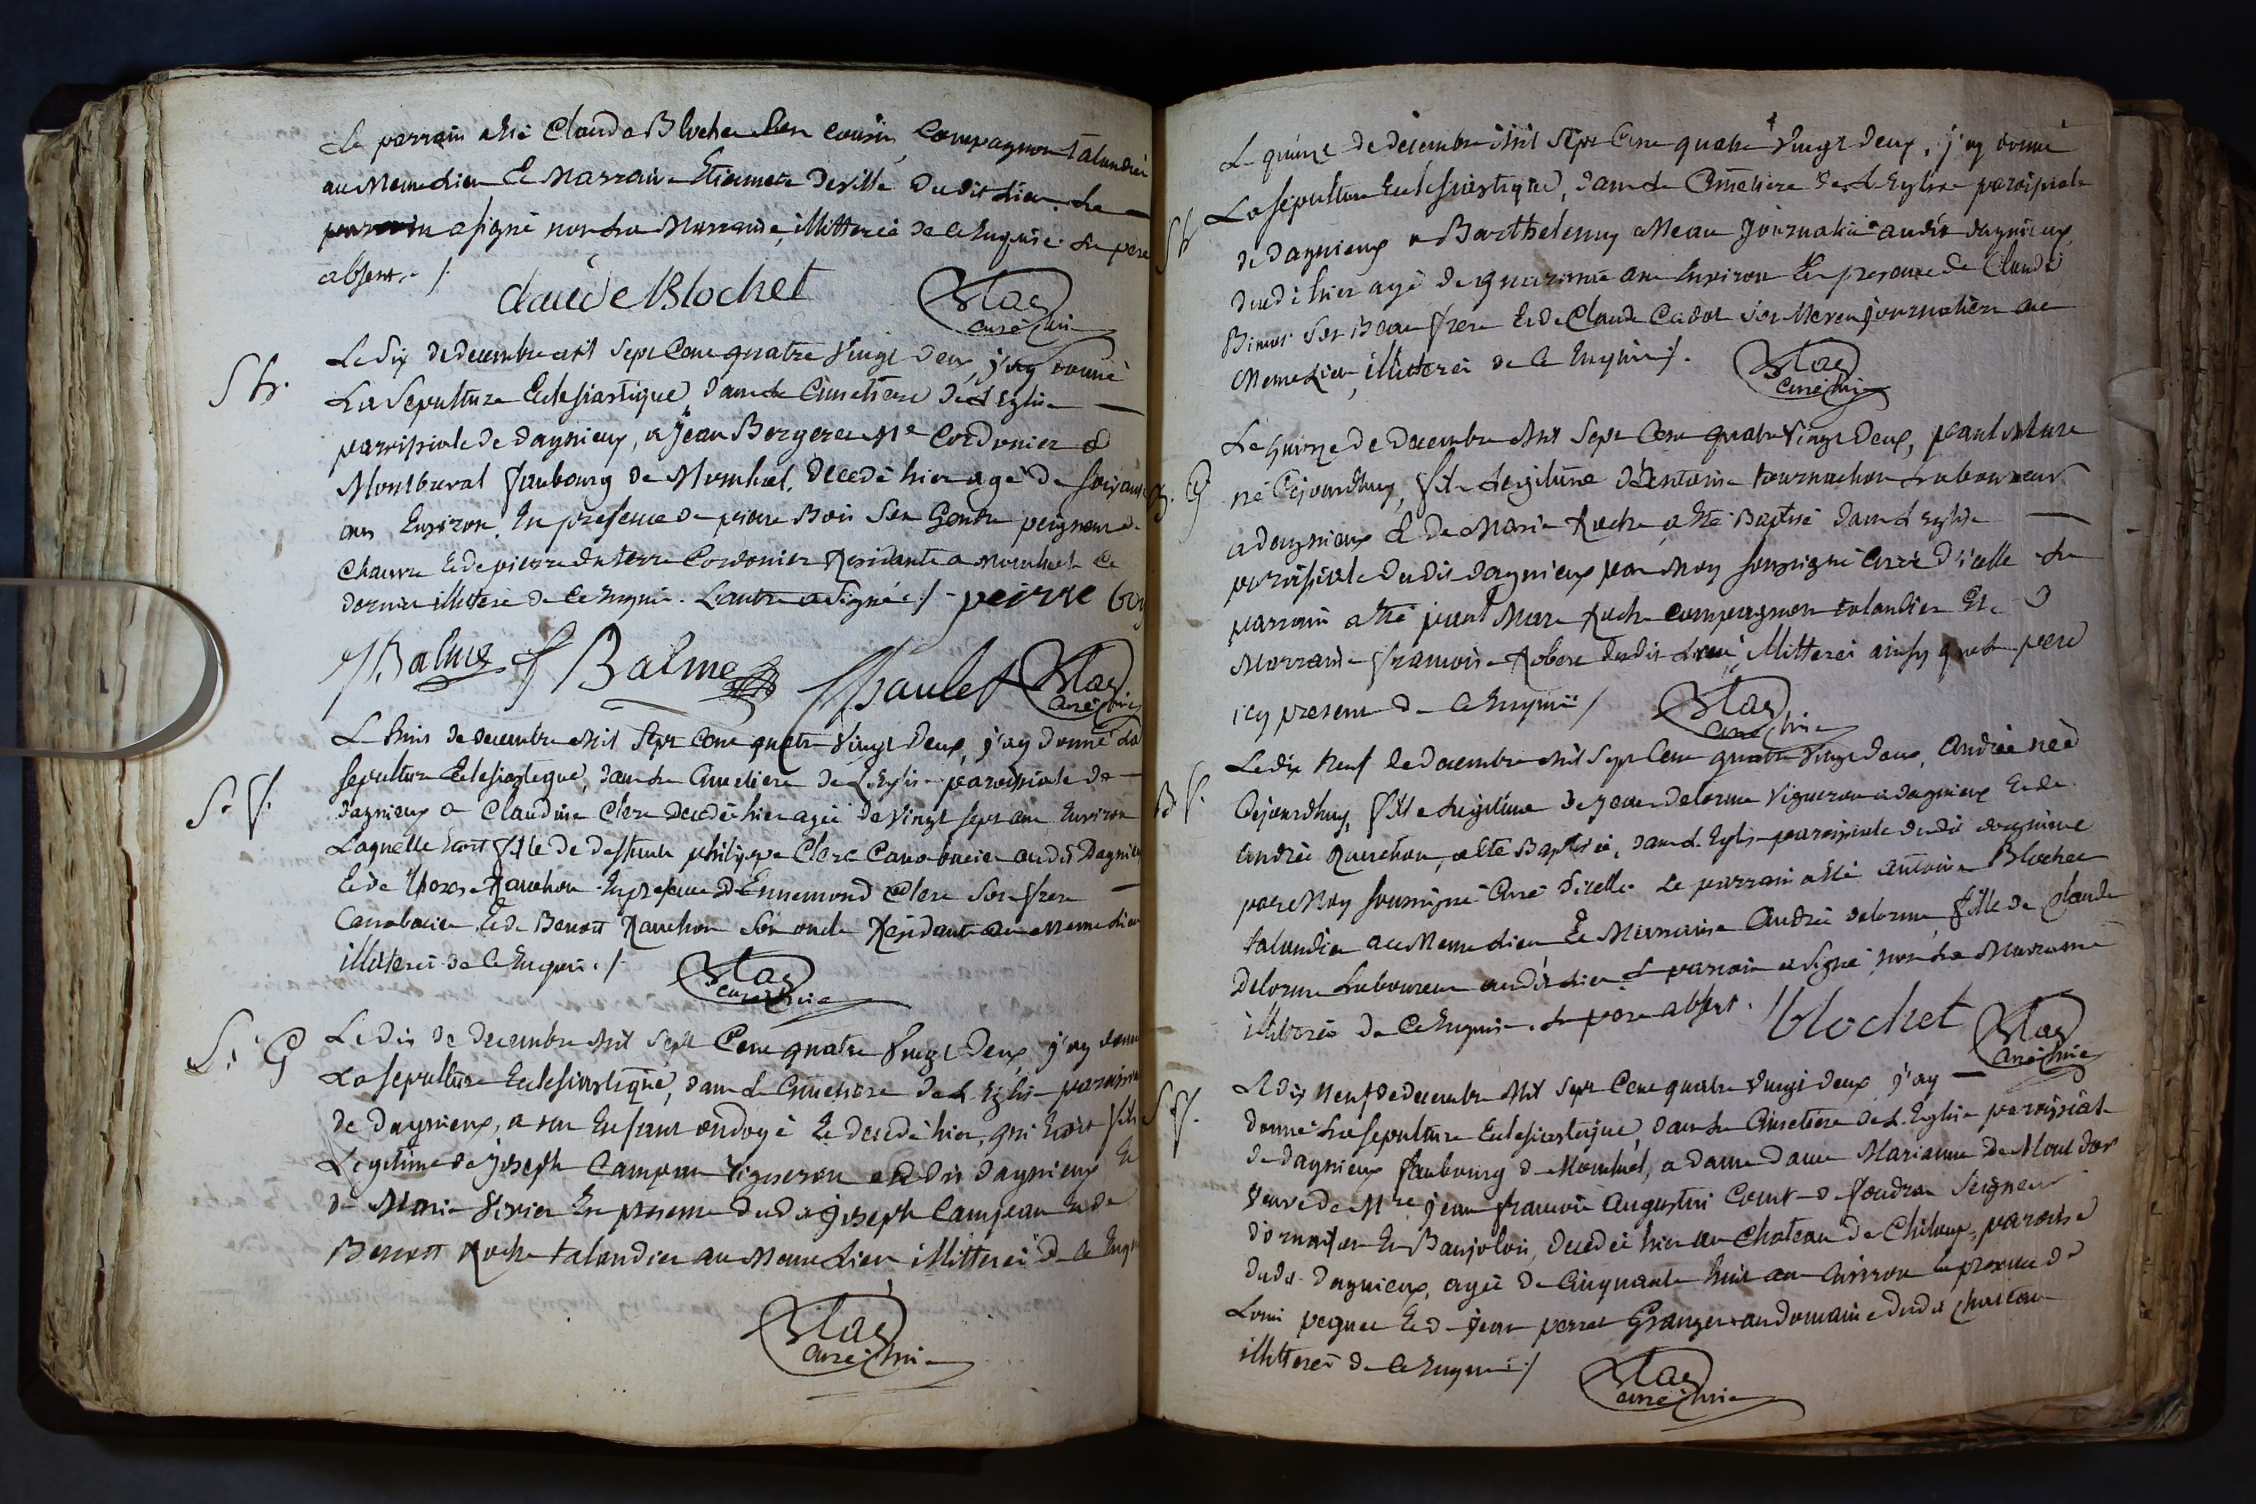 Le parrain a été Claude Blochet son cousin, compagnon talandier
au meme lieu et marraine Etiennette Deville dudit lieu. Le
parrain a signé non la marraine, illitterée de ce enquise. Le pere
absent ./.
claude Blochet
curé
S h.
Le six de decembre mil sept cent quatre vingt deux, j'ay donné
la sepulture eclesiastique, dans le cimetiere de l'eglise
paroissiale de dagnieux, a jean Bergeret Me cordonier a
Montluval faubourg de Montluel, decedé hier agé de soixante
ans environ, en presence de pierre Bois son gendre peigneur de
chanvre et de pierre cordonier residants a montluel ce
dernier illitteré de ce enquis. L'autre a signé ./. peirre
Balme Balme Chaulet
curé
S. F.
Le huit de decembre mil sept cent quatre vingt deux, j'ay donné la
sepulture eclesiastique, dans le cimetiere de l'eglise paroissiale de
dagnieux a Claudine Clerc decedée hier agée de vingt sept ans environ
laquelle etoit fille de deffunt philippe Clerc audit Dagnieux
et de Ranchon en presence d'Ennemond Clerc son frere
et de Benoit Ranchon son oncle residants au meme lieu
illitterés de ce enquis ./.
curé
S. G
Le dix de decembre mil sept cent quatre vingt deux, j'ay donné
la sepulture eclesiastique, dans le cimetiere de l'eglise paroissiale
de dagnieux, a un enfant ondoyé et decedé hier, qui etoit fils
legitime de joseph Campean vigneron audit dagnieux et
de Marie Vivier en presence dudit joseph Campean et de
Benoit Roche talandier au meme lieu illitterés de ce enquis
curé
S h
Le quinze de decembre mil sept cent quatre vingt deux, j'ay donné
la sepulture eclesiastique, dans le cimetiere de l'eglise paroissiale
de dagnieux a Barthelemy Meau journalier audit dagnieux
decedé hier agé de quarante ans environ en presence de Claude
son Beau frere et de Claude Cadot son neveu journaliers au
meme lieu, illitterés de ce enquis ./.
curé
B. G
Le quinze de decembre mil sept cent quatre vingt deux, paul Marc
né cejourdhuy, fils legitime d'Antoine tournachon laboureur
a dagnieux et de Marie Roche, a eté baptisé dans l'eglise
paroissiale dudit dagnieux par moy soussigné curé d'icelle le
parrain a eté paul Marc Roche compagnon talandier et
marraine françoise Robert dudit lieu, illitterés ainsy que le pere
icy present de ce enquis ./
curé
B. F.
Le dix neuf de decembre mil sept cent quatre vingt deux, Andrée née
cejourdhuy, fille legitime de jean delorme vigneron a dagnieux et de
Andrée Ranchon, a eté baptisée, dans l'eglise paroissiale dudit dagnieux
par moy soussigné curé d'icelle. Le parrain a eté antoine Blochet
talandier au meme lieu et marraine Andrée delorme fille de Claude
Delorme laboureur audit lieu. Le parrain a signé, non la marraine
illitterée de ce enquise. Le pere absent.
blochet
curé
S F.
Le dix neuf de decembre mil sept cent quatre vingt deux j'ay
donné la sepulture eclesiastique, dans le cimetiere de l'eglise paroissiale
de dagnieux faubourg de Montluel, a dame dame Marianne de Mont d'or
veuve de Mre jean françois Augustin Comte de foudras seigneur
en Baujolois, decedée hier au chateau de Chiloup, paroisse
dudit dagnieux, agée de cinquante huit ans environ en presence de
Louis et de jean perret Granger au domaine dudit chateau
illitterés de ce enquis ./
curé